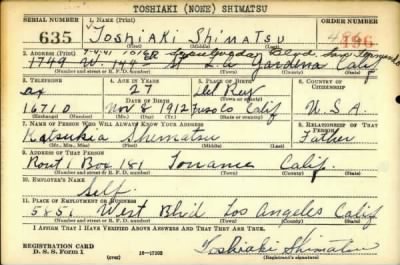 TOSHIAKI (NONE) SHIMATSU
SERIAL NUMBER
1. NAME (Print)
ORDER NUMBER
635
Toshiaki Shimatsu
496
(First) (Middle) (Last)
2. ADDRESS (Print)
1749 W. 144th St L.A. Gardena Calif
(Number and street or R. F. D. number) (Town) (County) (State)
3. TELEPHONE
4. AGE IN YEARS
5. PLACE OF BIRTH
6. COUNTRY OF CITIZENSHIP
27
Del Rey
DATE OF BIRTH
16710
Nov 8 1912
Calif
U.S.A.
(Exchange) (Number)
(Mo.) (Day) (Yr.)
(Town or county)
(State or country)
7. NAME OF PERSON WHO WILL ALWAYS KNOW YOUR ADDRESS
8. RELATIONSHIP OF THAT PERSON
Shimatsu Father
(Mr., Mrs., Miss) (First) (Middle) (Last)
9. ADDRESS OF THAT PERSON
Rout 1 Box 181 Torrance Calif.
(Number and street or R. F. D. number) (Town) (County) (State)
10. EMPLOYER'S NAME
Self
11. PLACE OF EMPLOYMENT OR BUSINESS
5851 West Blvd Los Angeles Calif
(Number and street or R. F. D. number) (Town) (County) (State)
I AFFIRM THAT I HAVE VERIFIED ABOVE ANSWERS AND THAT THEY ARE TRUE.
REGISTRATION CARD
D. S. S. Form 1
(over)
16—17105
Toshiaki Shimatsu
(Registrant's signature)